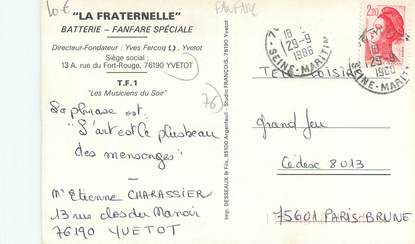 10€
FANFARE
"LA FRATERNELLE"
BATTERIE – FANFARE SPÉCIALE
Directeur-Fondateur : Yves Fercoq, Yvetot
Siège social :
13 A, rue du Fort-Rouge, 76190 YVETOT
T.F. 1
"Les Musiciens du Soir"
76
La phrase est:
"L'art est le plus beau
des mensonges"
Mr Etienne CHARASSIER
13 rue clos du Manoir
76190 YVETOT
Imp. DESSEAUX & Fils, 95100 Argenteuil - Studio FRANÇOIS, 76190 Yvetot
18 H
29-9
1986
SEINE-MARITIME
2,20
29-9
1986
SEINE-MARITIME
TELE Loisirs
Grand Jeu
Cédex 8013
75601 PARIS BRUNE